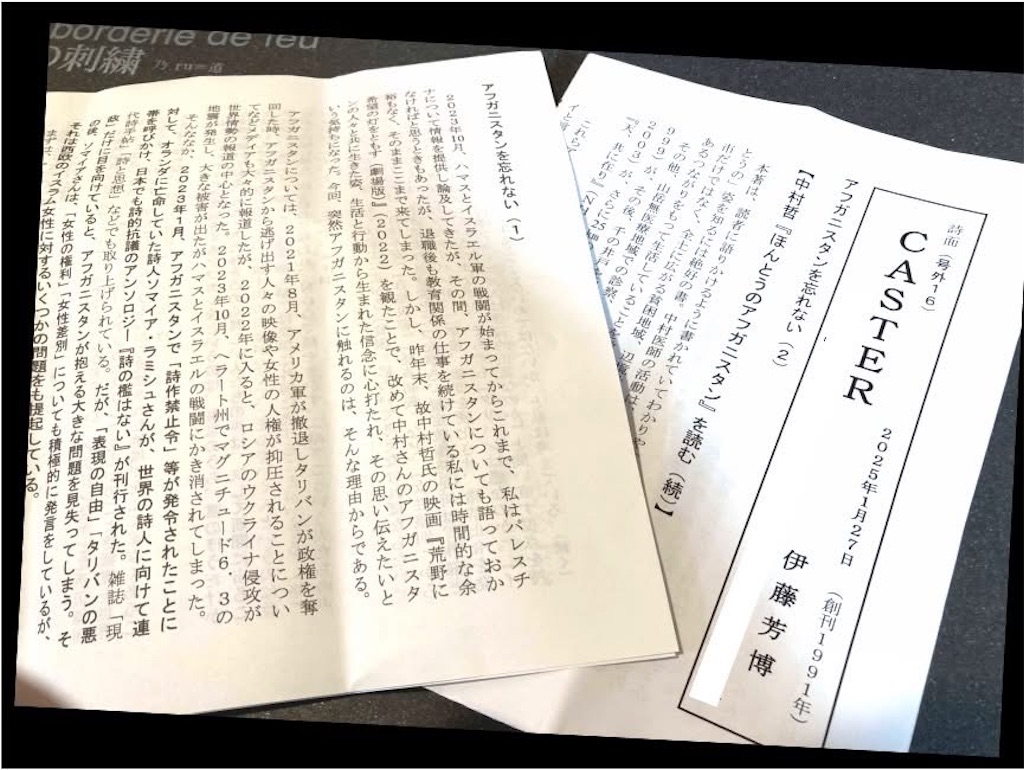 borderie de feu
の刺繍 乃 ru=道
詩面(号外16)
CASTER
2025年1月27日
(創刊1991年)
伊藤芳博
アフガニスタンを忘れない(2)
【中村哲『ほんとうのアフガニスタン』を読む(続)】
本著は、読者に語りかけるように書かれていてわかりや
とうの」姿を知るには絶好の書。中村医師の活動は
出だけではなく、全土に広がる貧困地域、辺
あるつながりをもって生活していることを
その他、山岳無医療地域での診療、
999)が、その後、千の井
2003)が、さらに
「天、共に在り」
これら
アフガニスタンを忘れない(1)
2023年10月、ハマスとイスラエル軍の戦闘が始まってからこれまで、私はパレスチ
ナについて情報を提供し論及してきたが、その間、アフガニスタンについても語っておか
なければと思うときもあったが、退職後も教育関係の仕事を続けている私には時間的な余
裕もなく、そのままここまで来てしまった。しかし、昨年末、故中村哲氏の映画『荒野に
希望の灯をともす(劇場版)』(2022)を観たことで、改めて中村さんのアフガニスタ
ンの人々と共に生きた姿、生活と行動から生まれた信念に心打たれ、その思い伝えたいと
いう気持ちになった。今回、突然アフガニスタンに触れるのは、そんな理由からである。
アフガニスタンについては、2021年8月、アメリカ軍が撤退しタリバンが政権を奪
回した時、アフガニスタンから逃げ出す人々の映像や女性の人権が抑圧されることについ
てなどメディアも大々的に報道したが、2022年に入ると、ロシアのウクライナ侵攻が
世界情勢の報道の中心となった。2023年10月、ヘラート州でマグニチュード6.3の
地震が発生し、大きな被害が出たがハマスとイスラエルの戦闘にかき消されてしまった。
そんななか、2023年1月、アフガニスタンで「詩作禁止令」等が発令されたことに
対して、オランダに亡命していた詩人ソマイア・ラミシュさんが、世界の詩人に向けて連
帯を呼びかけ、日本でも詩的抗議のアンソロジー『詩の檻はない』が刊行された。雑誌「現
代詩手帖」「詩と思想」などでも取り上げられている。だが、「表現の自由」「タリバンの悪
政」だけに目を向けていると、アフガニスタンが抱える大きな問題を見失ってしまう。そ
の後、ソマイアさんは、「女性の権利」「女性差別」についても積極的に発言をしているが、
それは西欧のイスラム女性に対するいくつかの問題をも提起している。